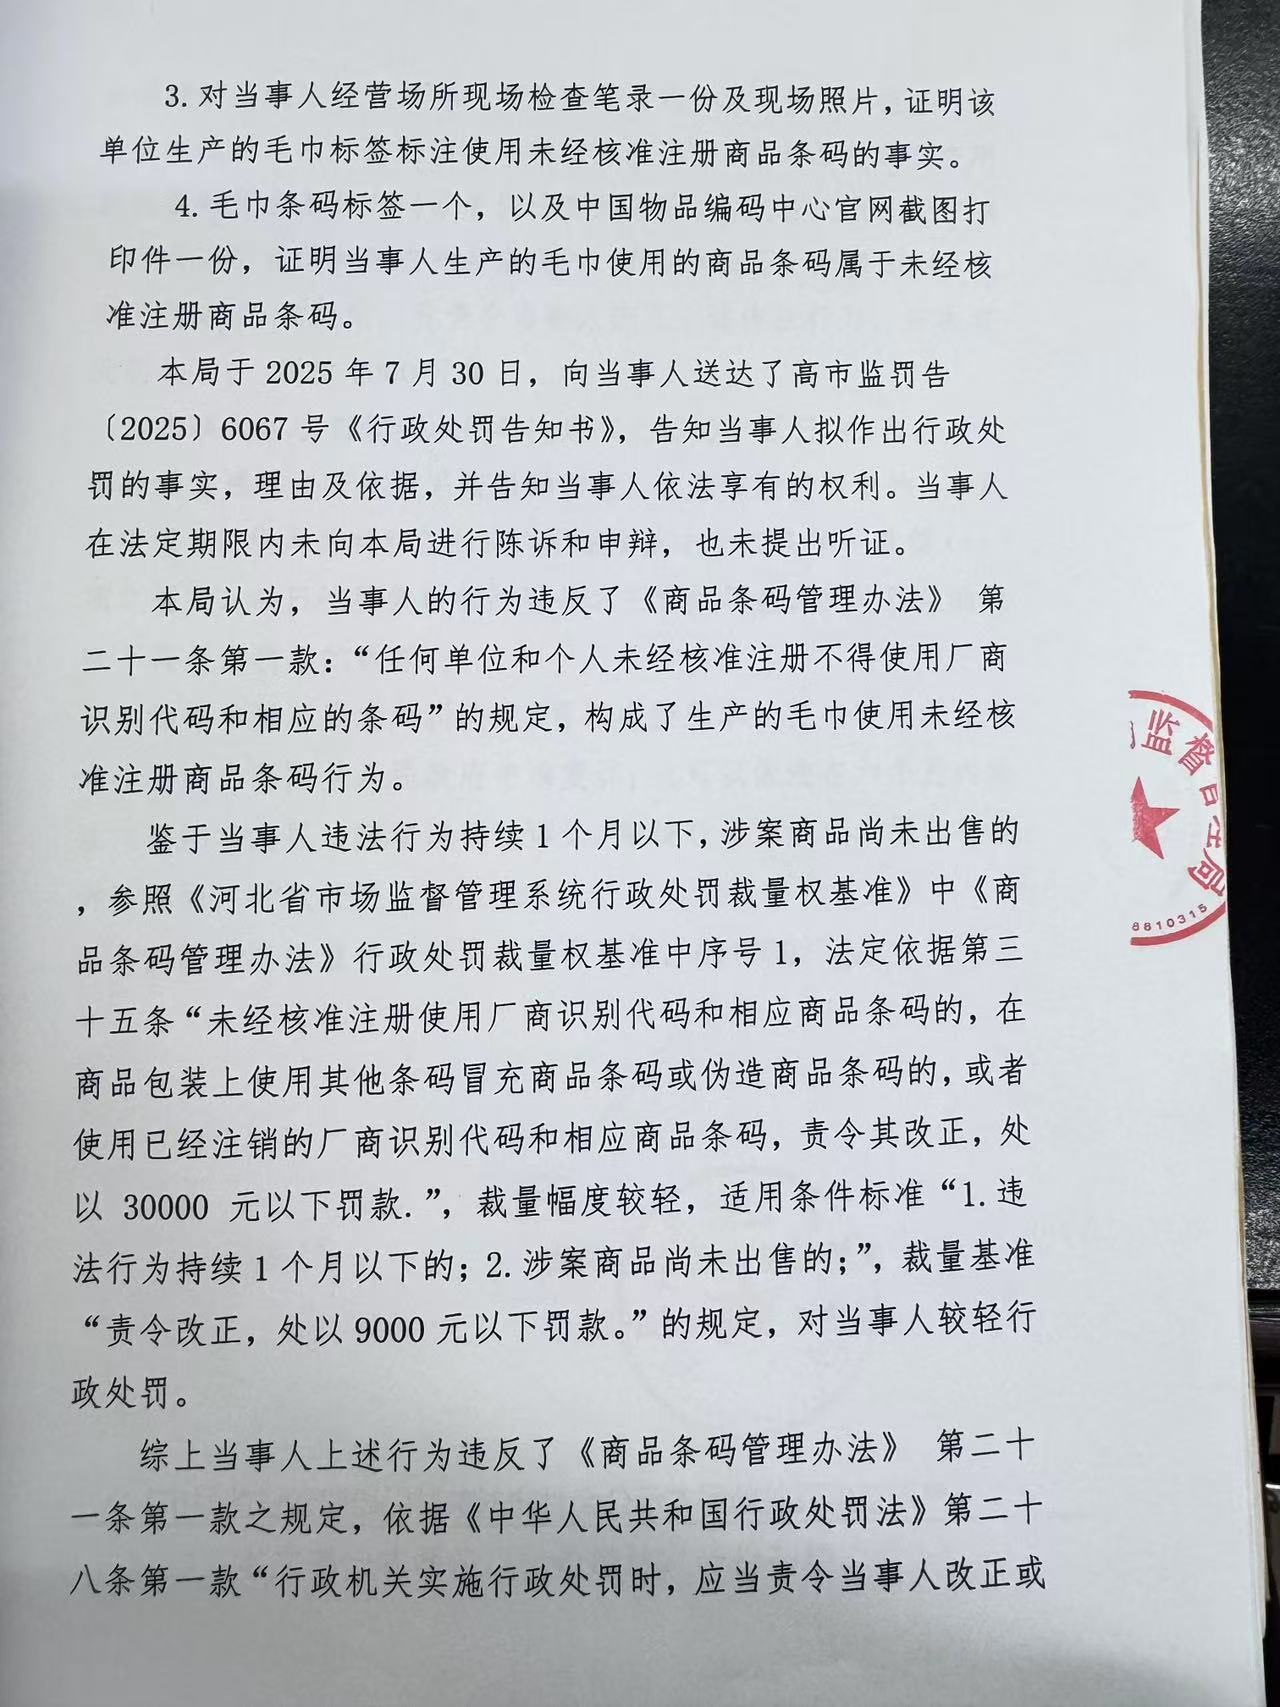 3. 对当事人经营场所现场检查笔录一份及现场照片，证明该
单位生产的毛巾标签标注使用未经核准注册商品条码的事实。
4. 毛巾条码标签一个，以及中国物品编码中心官网截图打
印件一份，证明当事人生产的毛巾使用的商品条码属于未经核
准注册商品条码。
本局于 2025 年 7 月 30 日，向当事人送达了高市监罚告
〔2025〕6067 号《行政处罚告知书》，告知当事人拟作出行政处
罚的事实，理由及依据，并告知当事人依法享有的权利。当事人
在法定期限内未向本局进行陈诉和申辩，也未提出听证。
本局认为，当事人的行为违反了《商品条码管理办法》 第
二十一条第一款：“任何单位和个人未经核准注册不得使用厂商
识别代码和相应的条码”的规定，构成了生产的毛巾使用未经核
准注册商品条码行为。
鉴于当事人违法行为持续 1 个月以下，涉案商品尚未出售的
，参照《河北省市场监督管理系统行政处罚裁量权基准》中《商
品条码管理办法》行政处罚裁量权基准中序号 1，法定依据第三
十五条“未经核准注册使用厂商识别代码和相应商品条码的，在
商品包装上使用其他条码冒充商品条码或伪造商品条码的，或者
使用已经注销的厂商识别代码和相应商品条码，责令其改正，处
以 30000 元以下罚款.”，裁量幅度较轻，适用条件标准“1. 违
法行为持续 1 个月以下的；2. 涉案商品尚未出售的；”，裁量基准
“责令改正，处以 9000 元以下罚款。”的规定，对当事人较轻行
政处罚。
综上当事人上述行为违反了《商品条码管理办法》 第二十
一条第一款之规定，依据《中华人民共和国行政处罚法》第二十
八条第一款“行政机关实施行政处罚时，应当责令当事人改正或
监督
局
8810315